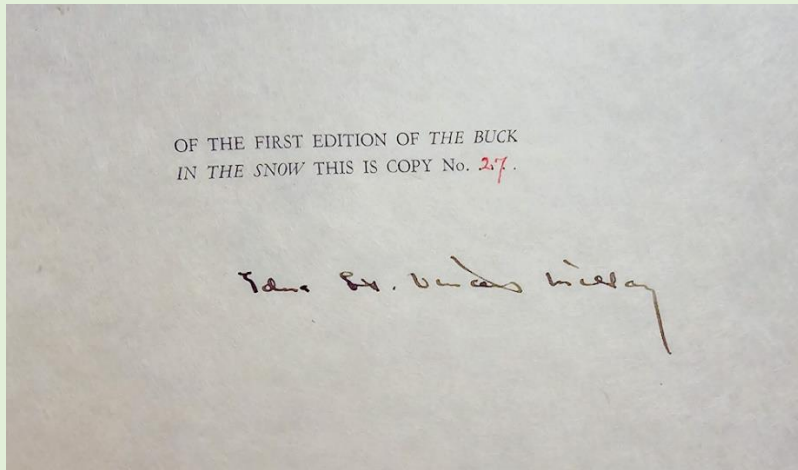 OF THE FIRST EDITION OF THE BUCK
IN THE SNOW THIS IS COPY No. 27.
Edna St. Vincent Millay